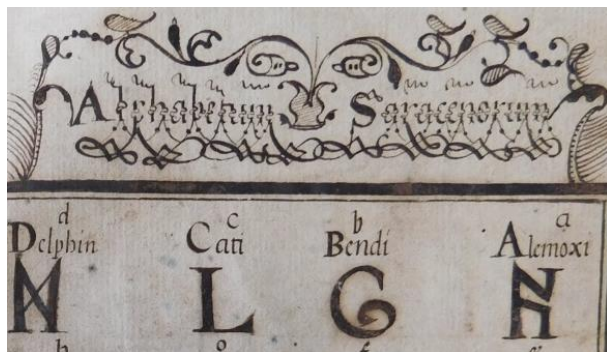 Alphabetum Saracenorum
d c b a
Delphin Cati Bendi Alemoxi